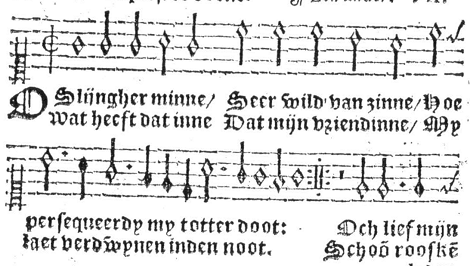 O Slijngher minne/ Seer wild' van zinne/ Hoe
wat heeft dat inne Dat mijn vriendinne/ My
persequeerdy my totter doot:
laet verdwynen inden noot.
Och lief mijn
Schoō rooskē